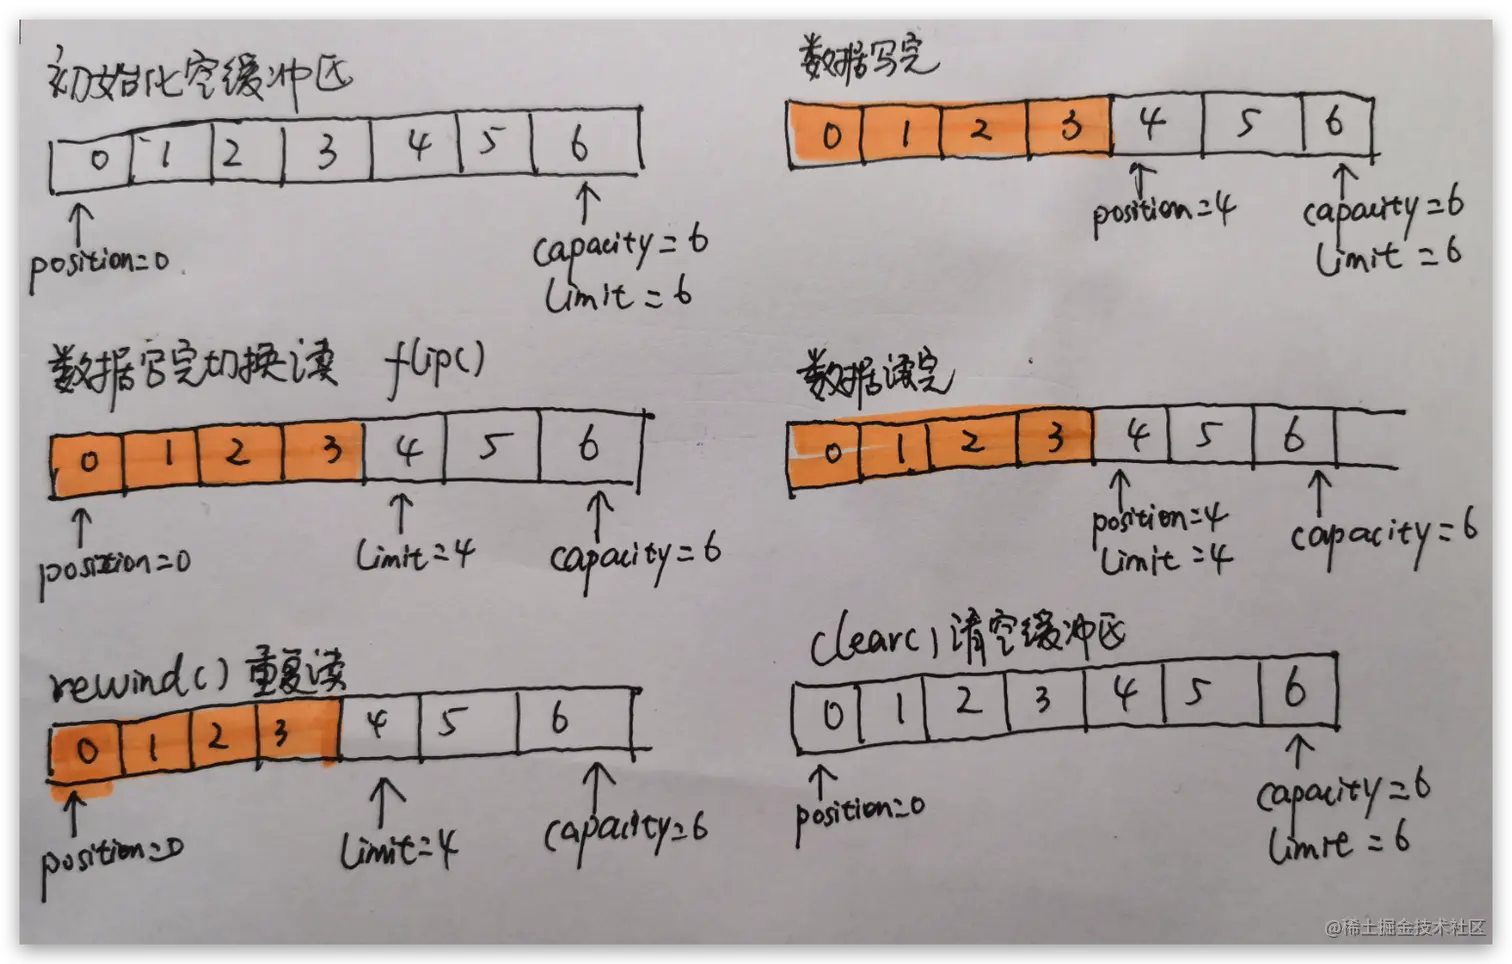 初始化空缓冲区
0 1 2 3 4 5 6
position=0
capacity=6
limit=6
数据写完
0 1 2 3 4 5 6
position=4
capacity=6
limit=6
数据写完切换读 flip()
0 1 2 3 4 5 6
position=0
limit=4
capacity=6
数据读完
0 1 2 3 4 5 6
position=4
limit=4
capacity=6
rewind() 重复读
0 1 2 3 4 5 6
position=0
limit=4
capacity=6
clear() 清空缓冲区
0 1 2 3 4 5 6
position=0
capacity=6
limit=6
@稀土掘金技术社区